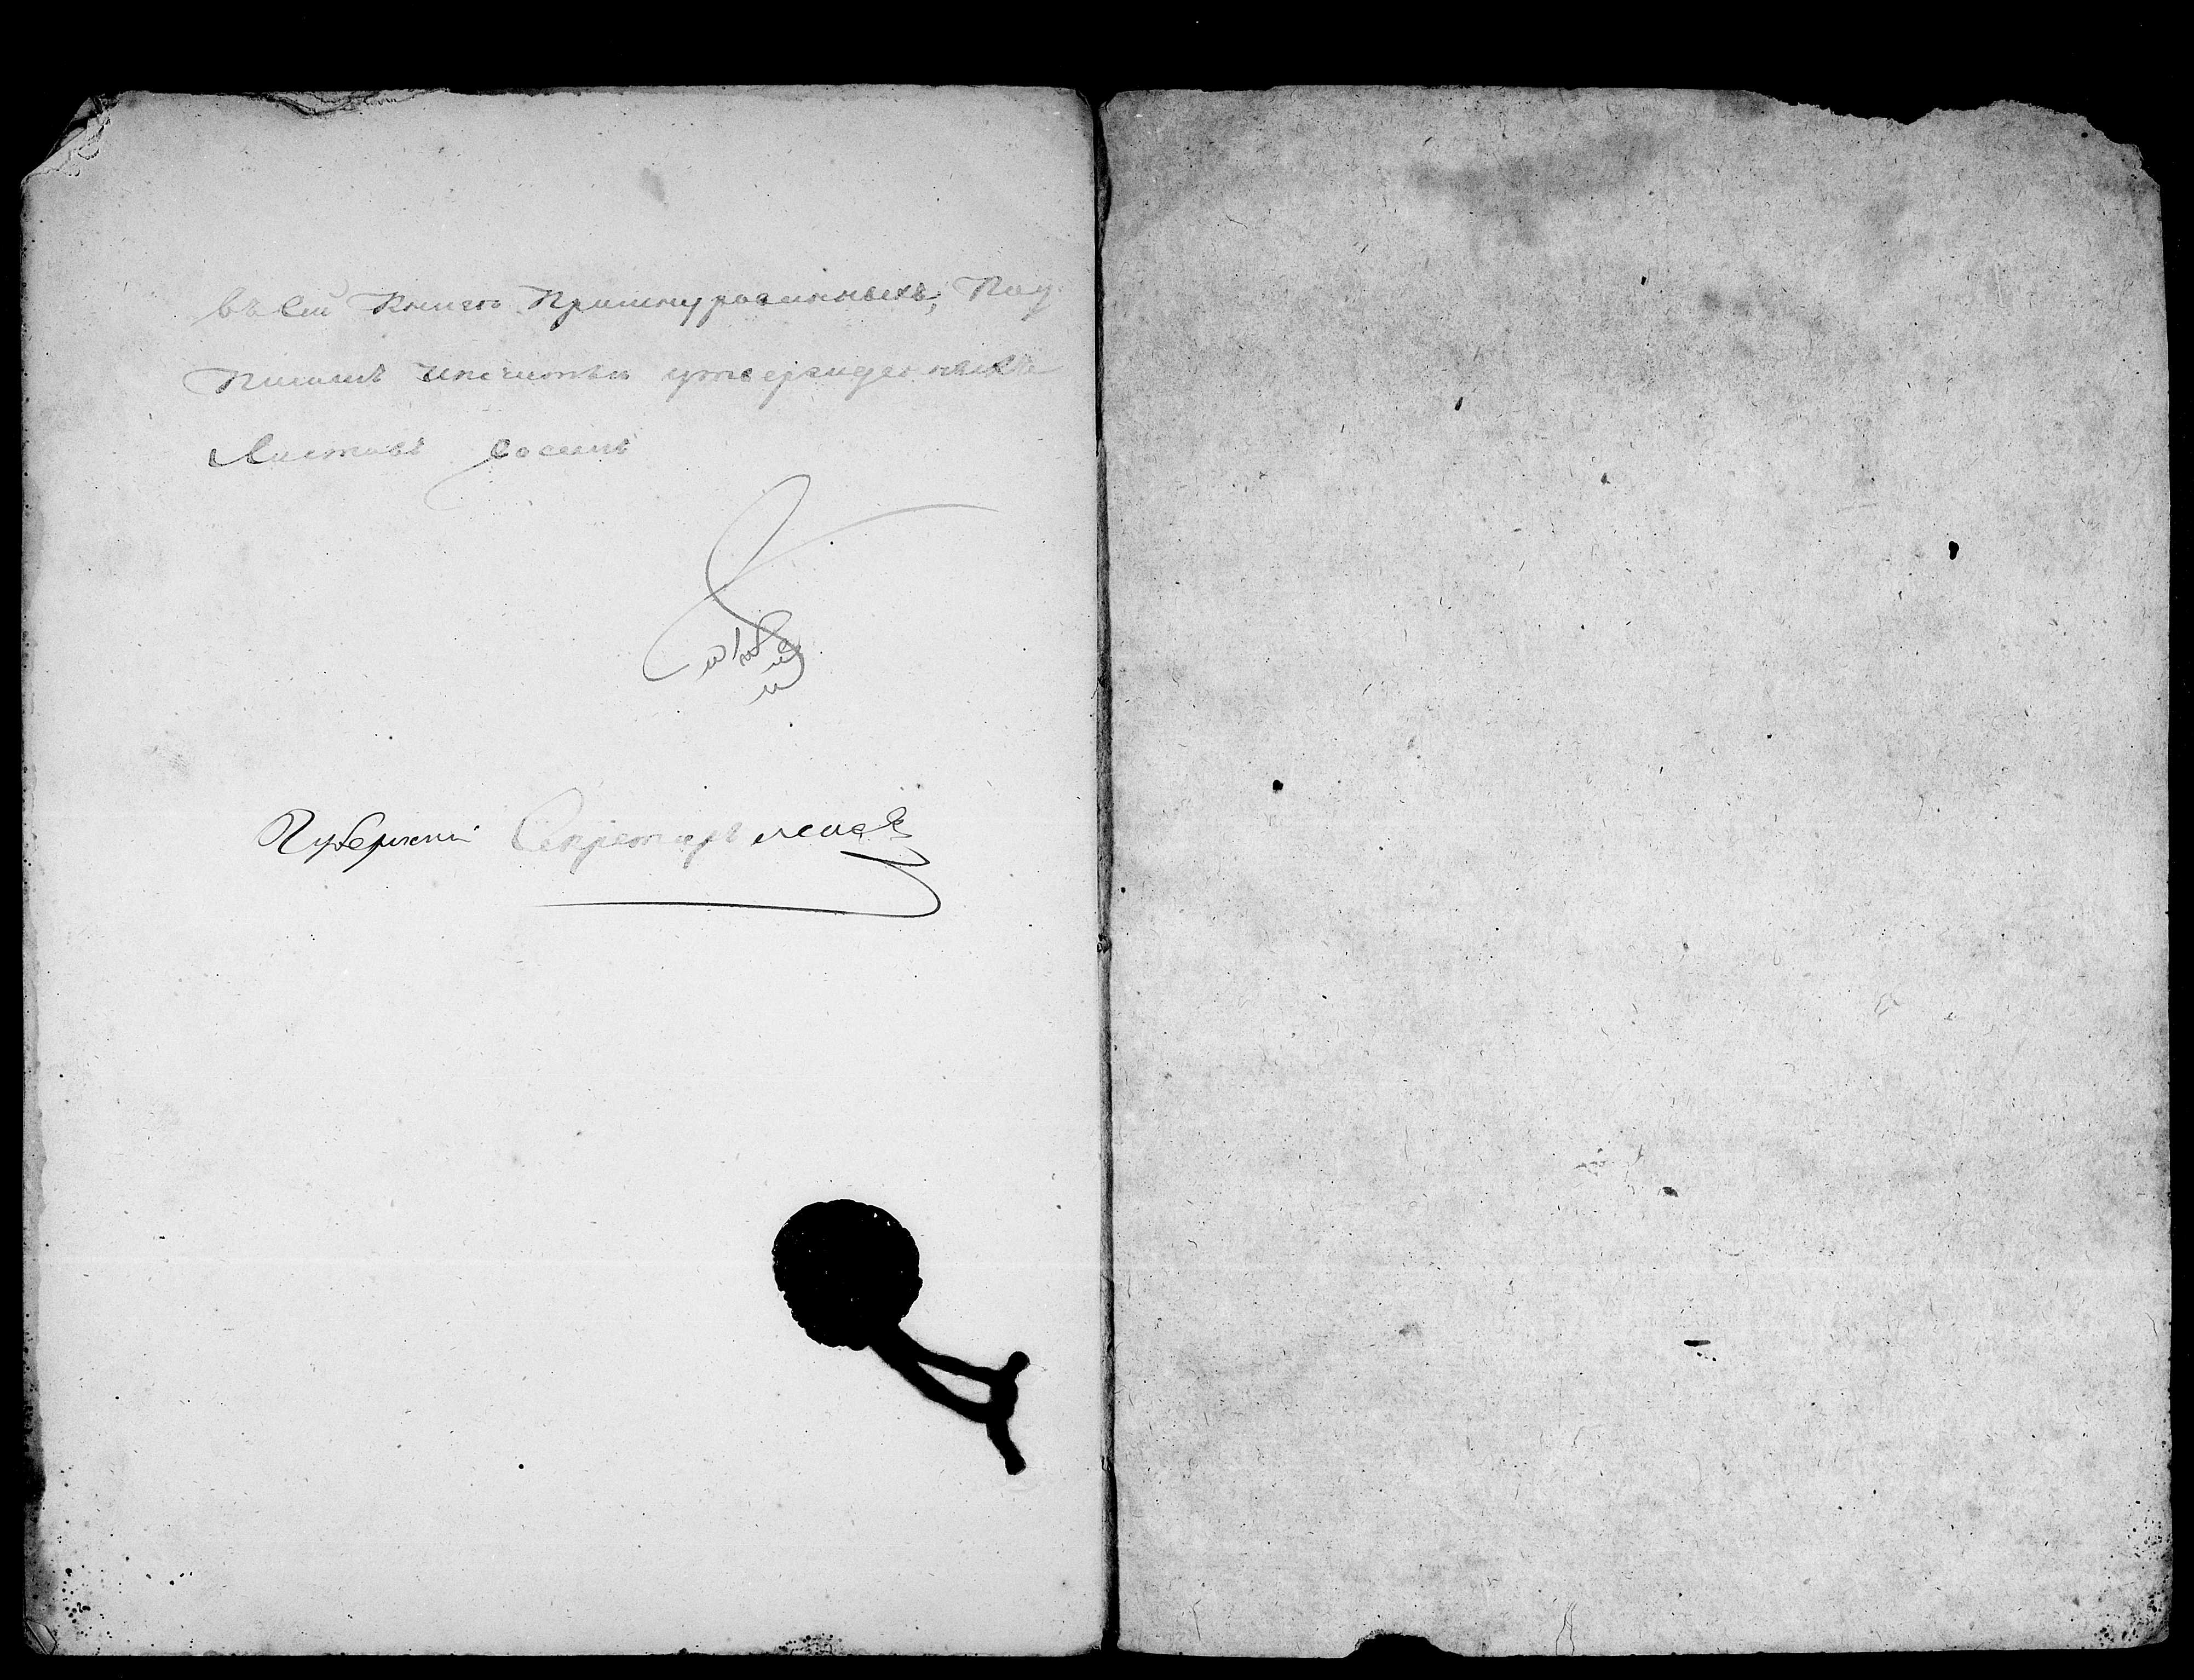 въ сей Книге Пришнурованныхъ, Под
писомъ и печатью утвержденныхъ
Листовъ восемь
Губернскій Секретарь